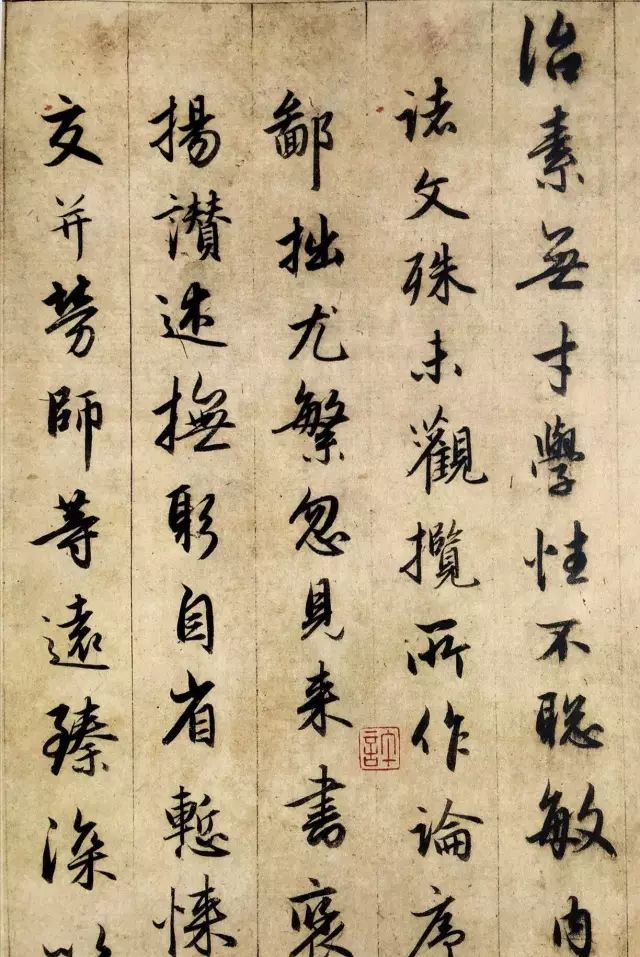 治素無才學性不聦敏内
諸文殊未觀攬所作論序
鄙拙尤繁忽見来書褒
揚讃述撫躬自省慙悚
交并勞師等遠臻深以
許